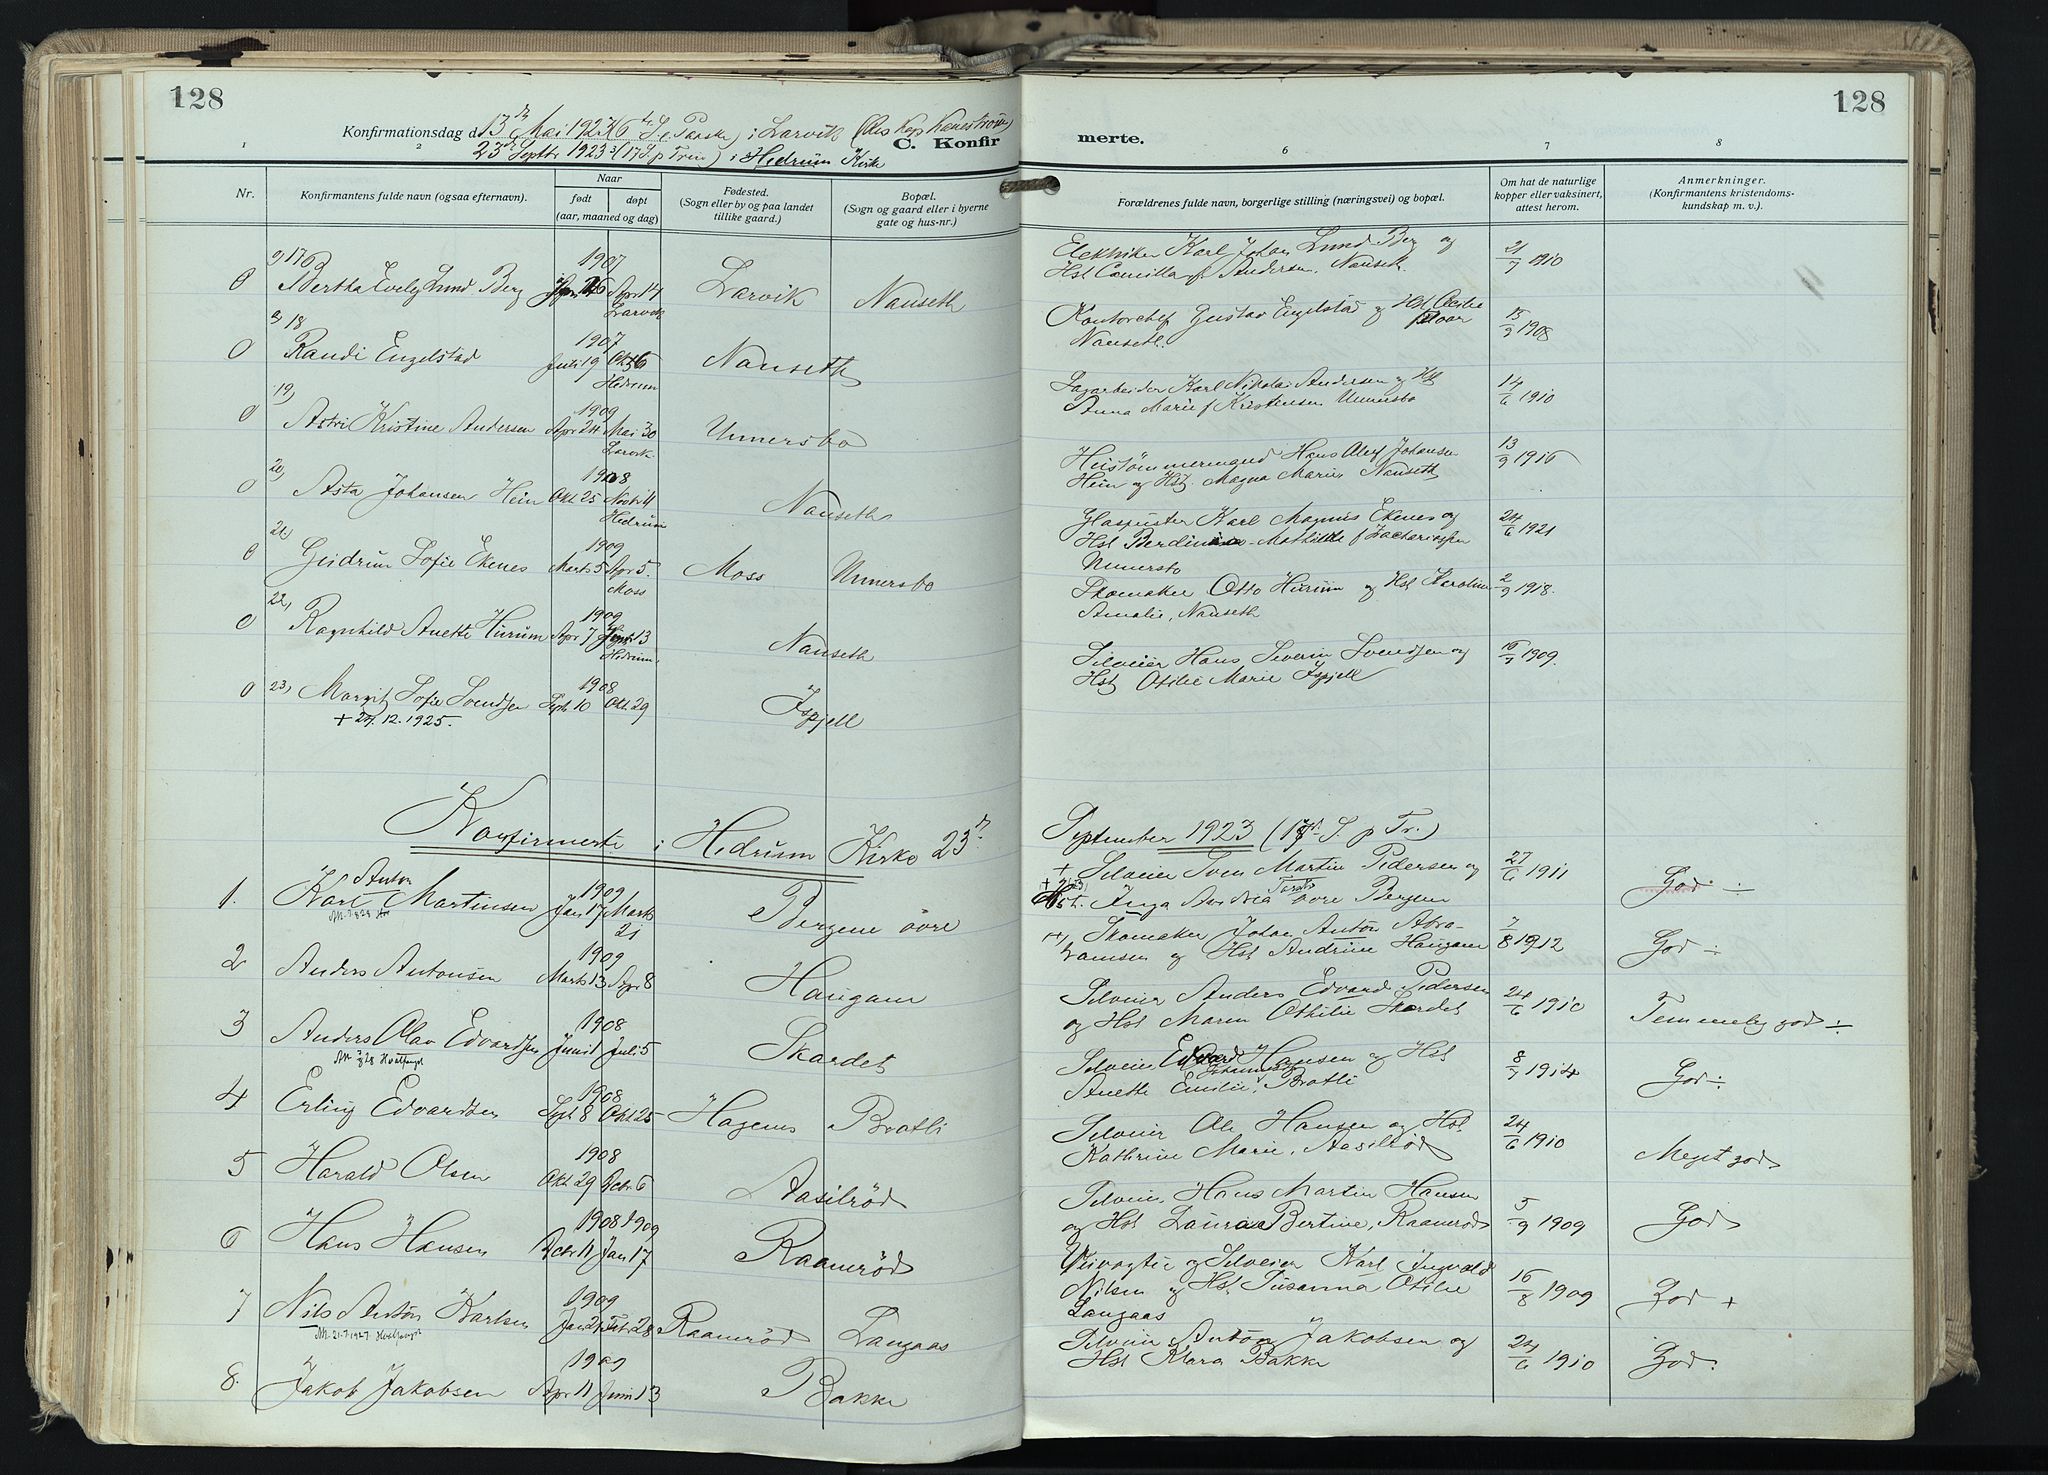 128
128
Konfirmationsdag d. 13de Mai 1923 (6te S. e Paaske) i Larvik
23de Septbr. 1923 (17 S. p Trin) i Hedrum Kirke
C. Konfir
merte.
1 2 6 7 8
Nr.
Konfirmantens fulde navn (ogsaa efternavn).
Naar
født døpt
(aar, maaned og dag)
Fødested.
(Sogn eller by og paa landet
tillike gaard.)
Bopæl.
(Sogn og gaard eller i byerne
gate og hus-nr.)
Forældrenes fulde navn, borgerlige stilling (næringsvei) og bopæl.
Om hat de naturlige
kopper eller vaksinert,
attest herom.
Anmerkninger.
(Konfirmantens kristendoms-
kundskap m. v.)
17 1907
0 Bertha Evelyn Lund Berg Apr 14 Larvik Nanseth
Larvik
Elektriker Karl Johan Lund Berg og
Hst Camilla f Andersen, Nanseth.
21/7 1910
18 1907
0 Randi Engelstad Juli 19 Okt 6 Nanseth
Hedrum
Kontorchef Gustav Engelstad og Hst Cecilie
Nanseth.
15/9 1908
19) 1909
0 Astri Kristine Andersen Apr 24 Mai 30 Unnersbo
Larvik
Sagarbeider Karl Nikolai Andersen og Hst
Anna Marie f Kristensen Unnersbo
14/6 1910
20) 1908
0 Asta Johansen Hein Okt 25 Novbr Nanseth
Hedrum
Hustømmermand Hans Alexf Johansen
Hein og Hst. Magna Marie, Nanseth
13/9 1916
21) 1909
0 Gudrun Sofie Ekenes Marts 5 Apr 5. Moss Unnersbo
Moss
Glaspuster Karl Magnus Ekenes og
Hst Berdine Mathilde f Zachariassen
Unnersbo
24/6 1921
22) 1909
0 Ragnhild Anette Hurum Apr 7 Juni 13 Nanseth
Hedrum
Skomaker Otto Hurum og Hst Karoline
Amalie, Nanseth
2/9 1918.
1908
0 23) Margit Sofie Svendsen Sept 10 Okt. 29 Ispjell
+ 24.12.1925.
Selveier Hans Severin Svendsen og
Hst Otilie Marie Ispjell
16/7 1909.
Konfirmerte i Hedrum Kirke 23de
September 1923 (17de S. p Tr.)
Anton 1909
1. Karl Martinsen Jan 17 Marts Bergene øvre
21
+ Selveier Sven Martin Pedersen og
Hst. Inga Andrea øvre Bergen
27/6 1911 God ÷
1909
2 Anders Antonsen Marts 13 Apr 8 Haugam
Skomaker Johan Anton Abra-
hamsen og Hst Andrine Haugam
7/8 1912 God ÷
1908
3 Anders Olav Edvardsen Juni 1 Juli 5 Skardet
Selveier Anders Edvard Pedersen
og Hst Maren Othilie Skardet
24/6 1910 Temmelig god ÷
1908
4 Erling Edvardsen Sept 8 Okt 25 Hagenes Bratli
Selveier Edvard Hansen og Hst
Anette Emilie, Bratli
8/7 1914 God ÷
1908
5 Harald Olsen Okt 29 Decbr. 6 Aasilrød
Selveier Ole Hansen og Hst
Kathrine Marie, Aasilrød
24/6 1910 Meget god
1908 1909
6 Hans Hansen Decbr 11 Jan 17 Raamrød
Selveier Hans Martin Hansen
og Hst Laura Bertine, Raamrød
5/9 1909 God
1909
7 Nils Anton Karlsen Jan 21 Feb 28 Raamrød Langaas
M. 21.7.1927
Veivogter og Selveier Karl Ingvald
Nilsen og Hst Susanna Otilie
Langaas
16/8 1909 God +
1909
8. Jakob Jakobsen Apr 11 Juni 13 Bakke
Selveier Anton Jakobsen og
Hst Klara Bakke
24/6 1910 God.